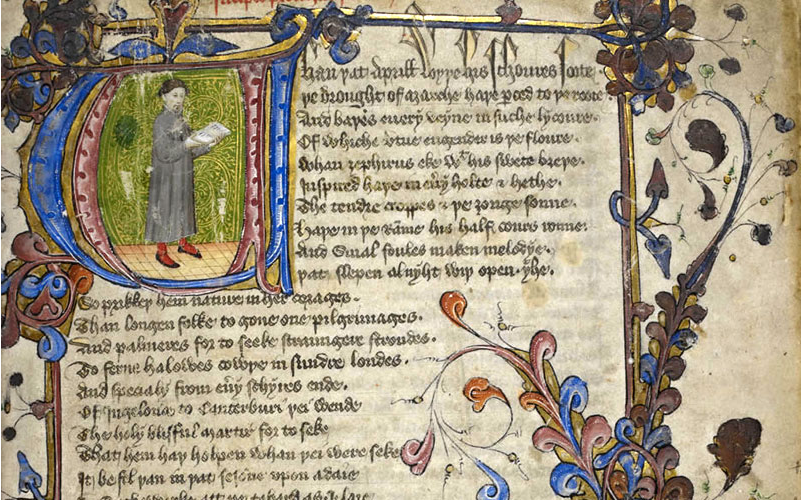 Whan þat Aprill wyþe his schoures soote
þe drought of Marche haþe perced to þe roote·
And baþed euery veyne in suche lycoure·
Of whiche vtue engendred is þe floure·
Whan zephirus eke wt his swete breþe·
Inspired haþe in eu'y holte & hethe·
The tendre croppes & þe ȝonge sonne·
Haþe in þe rāme his half cours ronne·
And smal foules maken melodye·
þat slepen al nyht wiþ open yhe·
So prikkeþ hem nature in her corages·
Than longen folke to gone one pilgrimages·
And palmeres for to seeke straungere strondes·
To ferne halowes cowþe in sundre londes·
And specialy from eu'y schyres ende·
Of Ingelond to Canterburi þei wende
The holy blisful martir for to seke
That hem haþ holpen whan þei were seke
It befil þan in þat sesone vpon a daie
att þe tabard as I laie